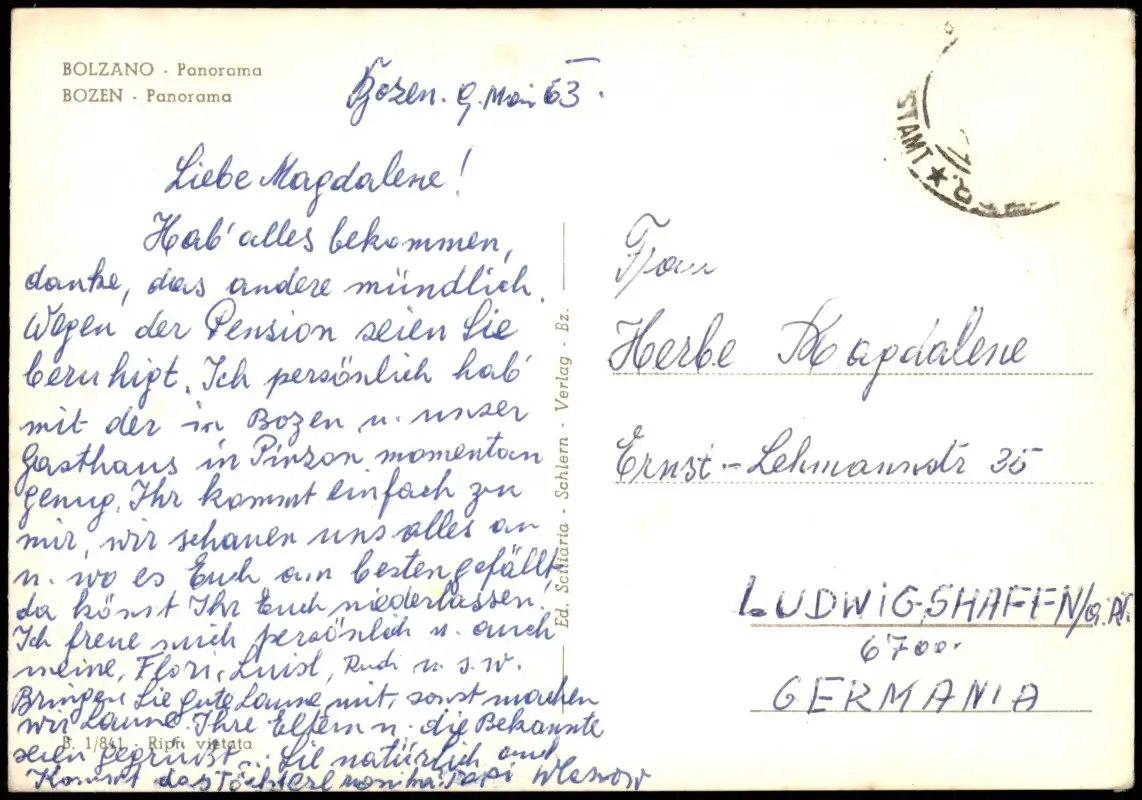 BOLZANO - Panorama
BOZEN - Panorama
Bozen. 9. Mai 63.
Liebe Magdalene!
Hab' alles bekommen,
danke, das andere mündlich.
Wegen der Pension seien Sie
beruhigt. Ich persönlich hab'
mit der in Bozen u. unser
Gasthaus in Pinzon momentan
genug. Ihr kommt einfach zu
mir, wir schauen uns alles an
u. wo es Euch am besten gefällt,
da könnt Ihr Euch niederlassen.
Ich freue mich persönlich u. auch
meine, Flori, Luisl, Rudi u. s. w.
Bringen Sie gute Laune mit, sonst machen
wir Laune. Ihre Eltern u. die Bekannte
seien gegrüßt... Sie natürlich auch
Kommt das Töchterl
B. 1/841 - Ripr. vietata
Ed. Sciliaria - Schlern - Verlag - Bz.
STAMT ★
Frau
Herbe Magdalene
Ernst-Lehmannstr 35
LUDWIGSHAFEN/a.Rh.
6700.
GERMANIA